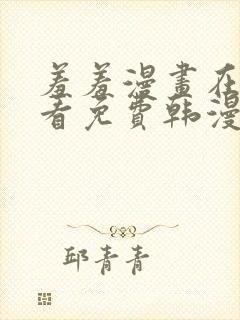 羞羞漫畫在
看免費韩漫
邱青青